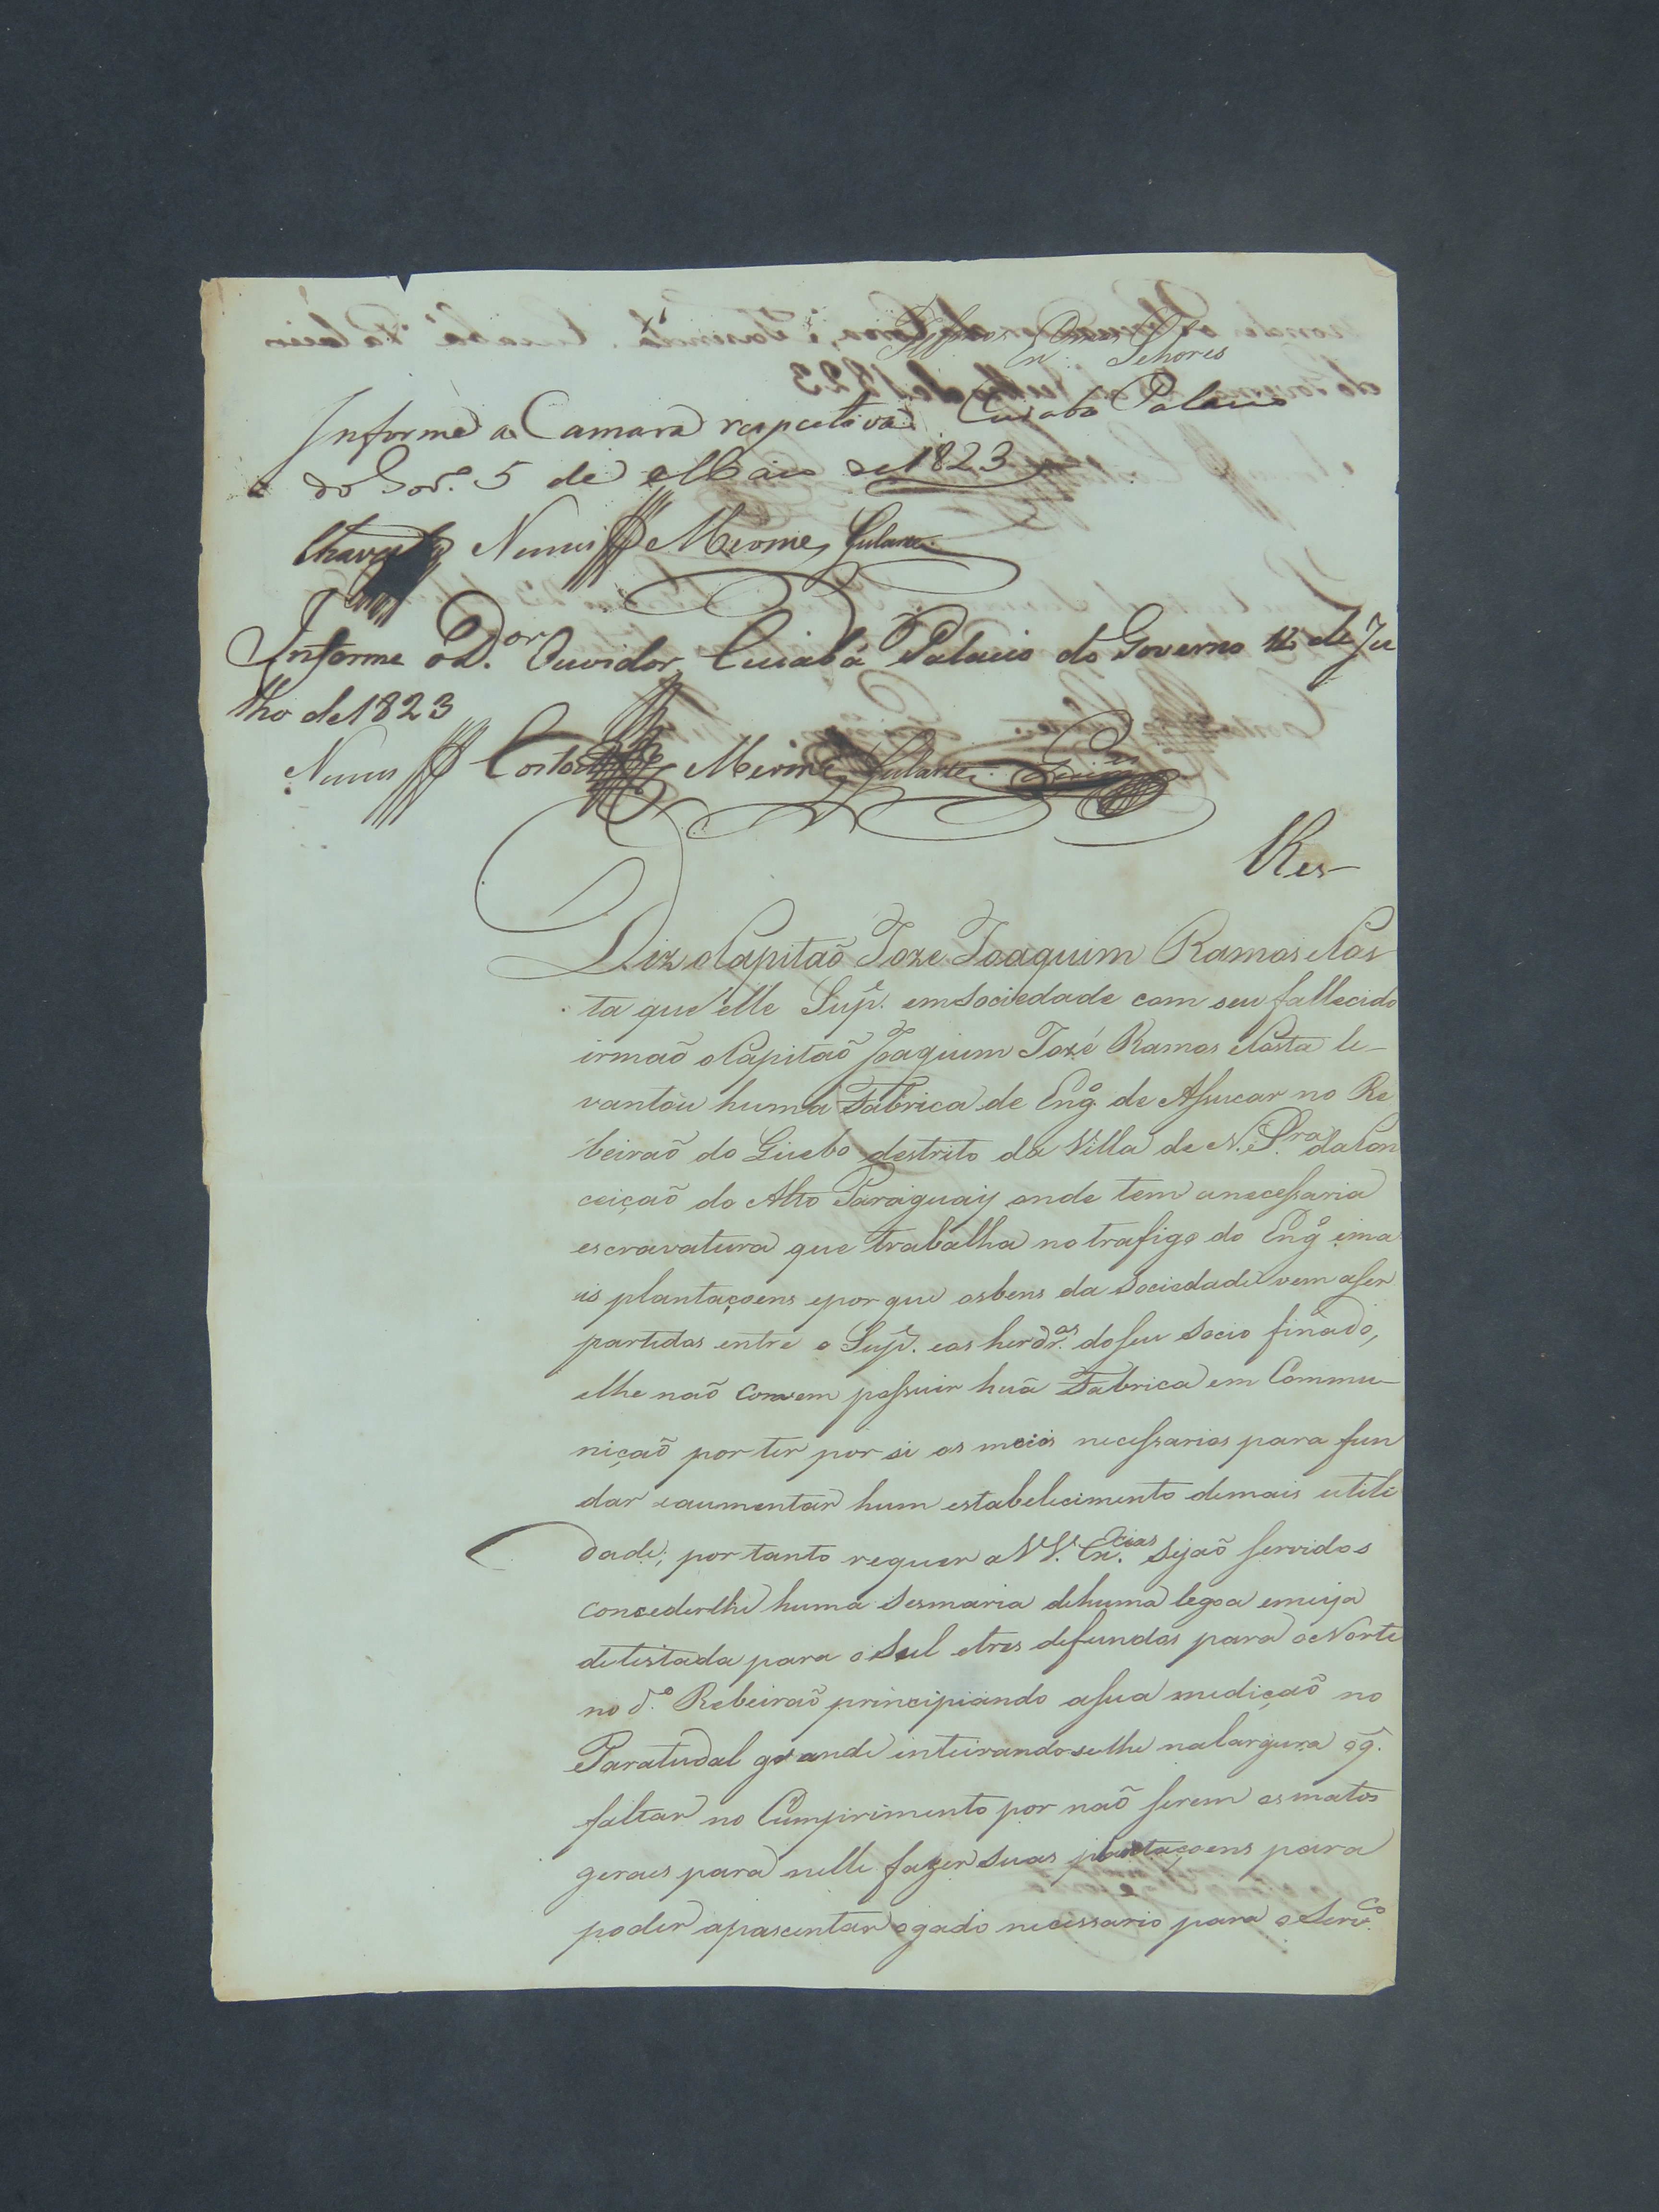 Illmos e Exmos Senhores
Informe a Camara respectiva. Cuiabá Palacio
do Gov.º 5 de Maio de 1823
Chaves Nunes Merme, Gularte
Informe o D.or Ouvidor, Cuiabá Palacio do Governo 12 de Ju
lho de 1823
Nunes Costa Merme, Gularte
Diz o Capitaõ Joze Joaquim Ramos e Cos-
ta que elle Sup.e em Sociedade com seu fallecido
irmaõ o Capitaõ Joaquim Jozé Ramos e Costa le-
vantou huma Fabrica de Eng.º de Assucar no Re
beiraõ do Liiebo destrito da Villa de N. S.ra da Con
ceiçaõ do Alto Paraguay onde tem a necessaria
escravatura que trabalha no trafigo do Eng.º e ma
is plantaçoens e por que os bens da Sociedade vem a ser
partidos entre o Sup.e e os herdr.os do seu Socio finado,
e lhe naõ convem possuir huã Fabrica em Commu-
niçaõ por ter por si os meios necessarios para fun
dar e aumentar hum estabelecimento de mais utili
dade; por tanto requer a VV. Ex.cias sejaõ servidos
concederlhe huma Sesmaria de huma legoa e meya
de testada para o Sul e tres de fundos para o Norte
no d.º Rebeiraõ principiando a sua mediçaõ no
Paratudal grande inteirandoselhe na largura o q̃.
faltar no Cumprimento por naõ serem os matos
geraes para nelle fazer suas plantaçoens para
poder apascentar o gado necessario para o Serv.co